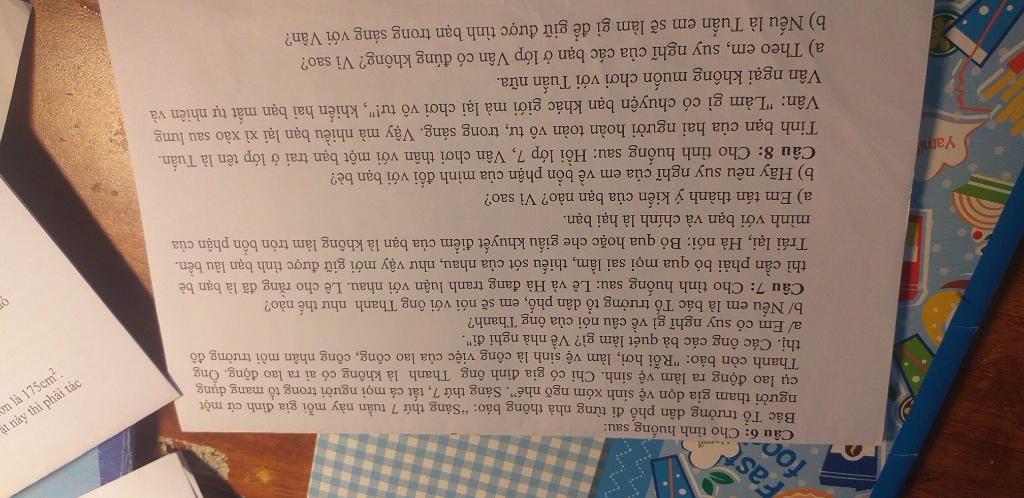 Câu 6: Cho tình huống sau:
Bác Tổ trưởng dân phố đi từng nhà thông báo: "Sáng thứ 7 tuần này mỗi gia đình cử một
người tham gia dọn vệ sinh xóm ngõ nhé". Sáng thứ 7, tất cả mọi người trong tổ mang dụng
cụ lao động ra làm vệ sinh. Chỉ có gia đình ông Thanh là không có ai ra lao động. Ông
Thanh còn bảo: "Rỗi hơi, làm vệ sinh là công việc của lao công, công nhân môi trường đô
thị. Các ông các bà quét làm gì? Về nhà nghỉ đi".
a/ Em có suy nghĩ gì về câu nói của ông Thanh?
b/ Nếu em là bác Tổ trưởng tổ dân phố, em sẽ nói với ông Thanh như thế nào?
Câu 7: Cho tình huống sau: Lê và Hà đang tranh luận với nhau. Lê cho rằng đã là bạn bè
thì cần phải bỏ qua mọi sai lầm, thiếu sót của nhau, như vậy mới giữ được tình bạn lâu bền.
Trái lại, Hà nói: Bỏ qua hoặc che giấu khuyết điểm của bạn là không làm tròn bổn phận của
mình với bạn và chính là hại bạn.
a) Em tán thành ý kiến của bạn nào? Vì sao?
b) Hãy nêu suy nghĩ của em về bổn phận của mình đối với bạn bè?
Câu 8: Cho tình huống sau: Hồi lớp 7, Vân chơi thân với một bạn trai ở lớp tên là Tuấn.
Tình bạn của hai người hoàn toàn vô tư, trong sáng. Vậy mà nhiều bạn lại xì xào sau lưng
Vân: "Làm gì có chuyện bạn khác giới mà lại chơi vô tư", khiến hai bạn mất tự nhiên và
Vân ngại không muốn chơi với Tuấn nữa.
a) Theo em, suy nghĩ của các bạn ở lớp Vân có đúng không? Vì sao?
b) Nếu là Tuấn em sẽ làm gì để giữ được tình bạn trong sáng với Vân?
là 175cm².
ật này thì phải tác
Fast
food
Yami